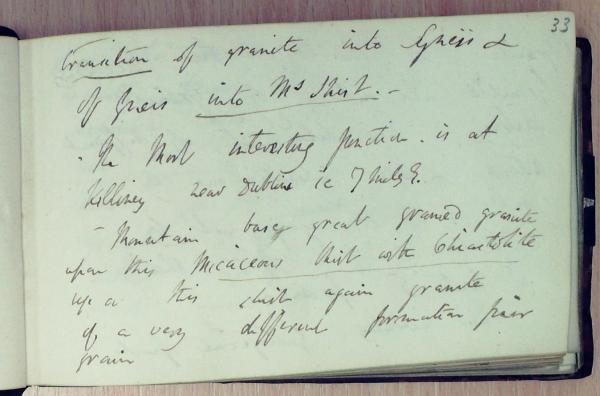 33
transition of granite into Gneiss &
of Gneis into Ms Shist. -
- The Most interesting junction. is at
Killiney near Dublin ie 7 Mils E.
- Mountain base, great grained granite
upon this Micaceous Shist with Chiastolite
upon this shist again granite
of a very different formation finer
grain